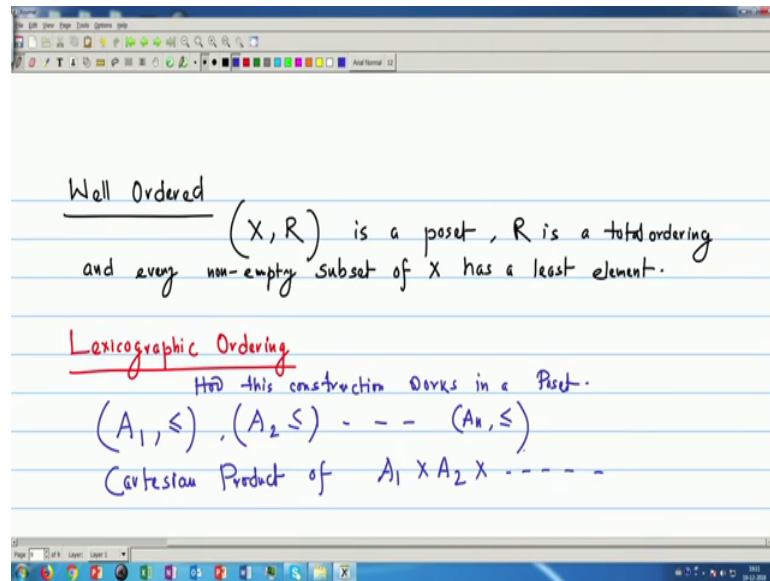 File Edit View Page Tools Options Help
Arial Normal 12
Well Ordered
(X, R) is a poset, R is a total ordering
and every non-empty subset of X has a least element.
Lexicographic Ordering
How this construction works in a Poset.
(A₁, ≤), (A₂ ≤) - - - (Aₙ, ≤)
Cartesian Product of A₁ X A₂ X - - - - -
Page of 9 Layer: Layer 1